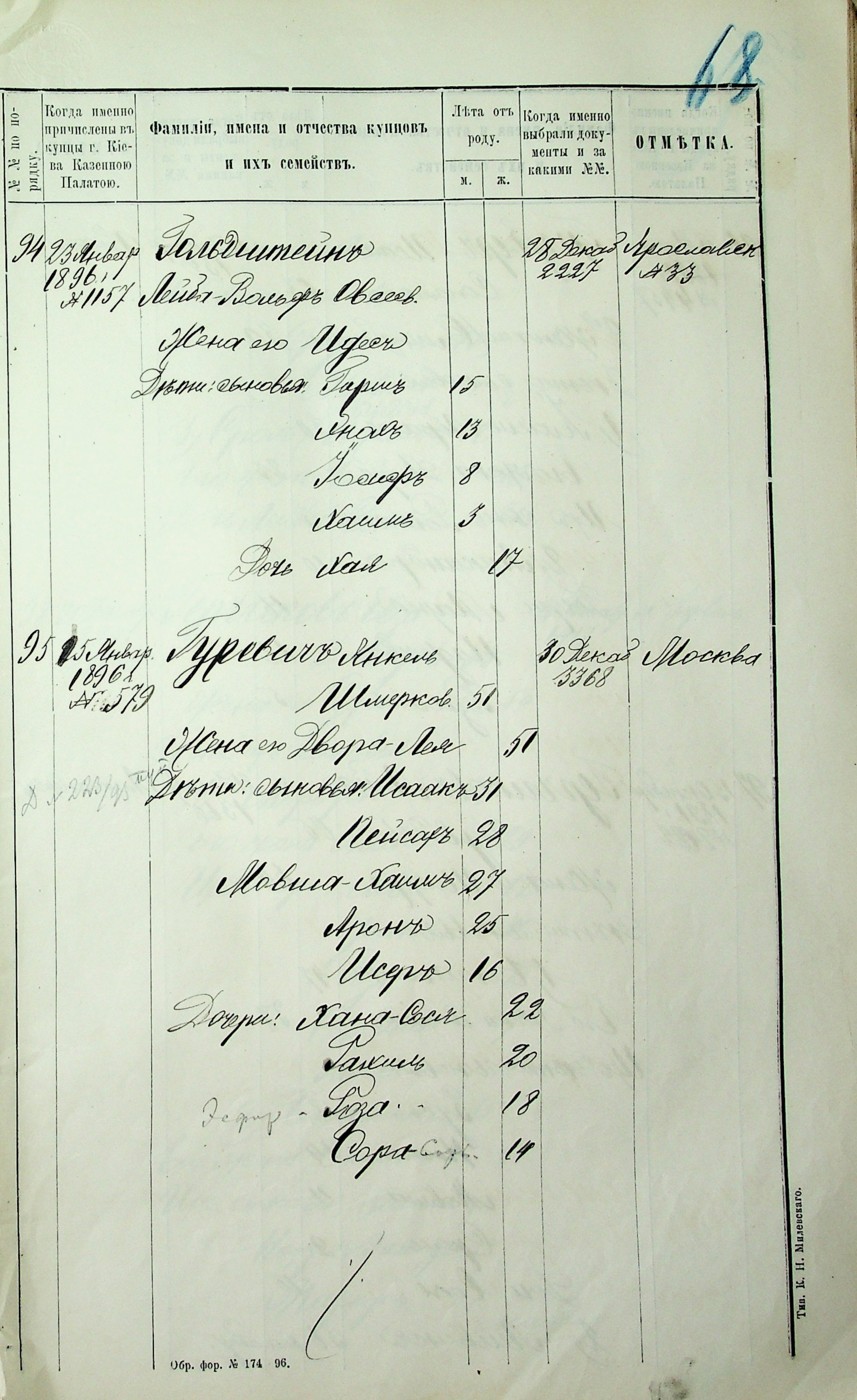 68
№ № по по-
рядку.
Когда именно
причислены въ
купцы г. Кіе-
ва Казенною
Палатою.
Фамиліи, имена и отчества купцовъ
и ихъ семействъ.
Лѣта отъ
роду.
м. ж.
Когда именно
выбрали доку-
менты и за
какими №№.
ОТМѢТКА.
94 23 Январ Гольдштейнъ 28 Декаб Ярославск
1896 2227 № 33
№ 1157 Лейба-Вольфъ Овсеев.
Жена его Идесъ
Дѣти: сыновья: Гаршъ 15
Янах 13
Іосифъ 8
Хаимъ 3
Дочь Хая 17
95 15 Январ. Гуревичъ Янкель 30 Декаб Москва
1896 3368
№ 579 Шмерков. 51
Жена его Двора-Лея 51
Дѣти: сыновья: Исаакъ 31
Пейсахъ 28
Мовша-Хаимъ 27
Аронъ 25
Исеръ 16
Дочери: Хана-Сося 22
Рахиль 20
Эсфир - Роза 18
Сора 14
Обр. фор. № 174 96.
Тип. К. Н. Милевскаго.